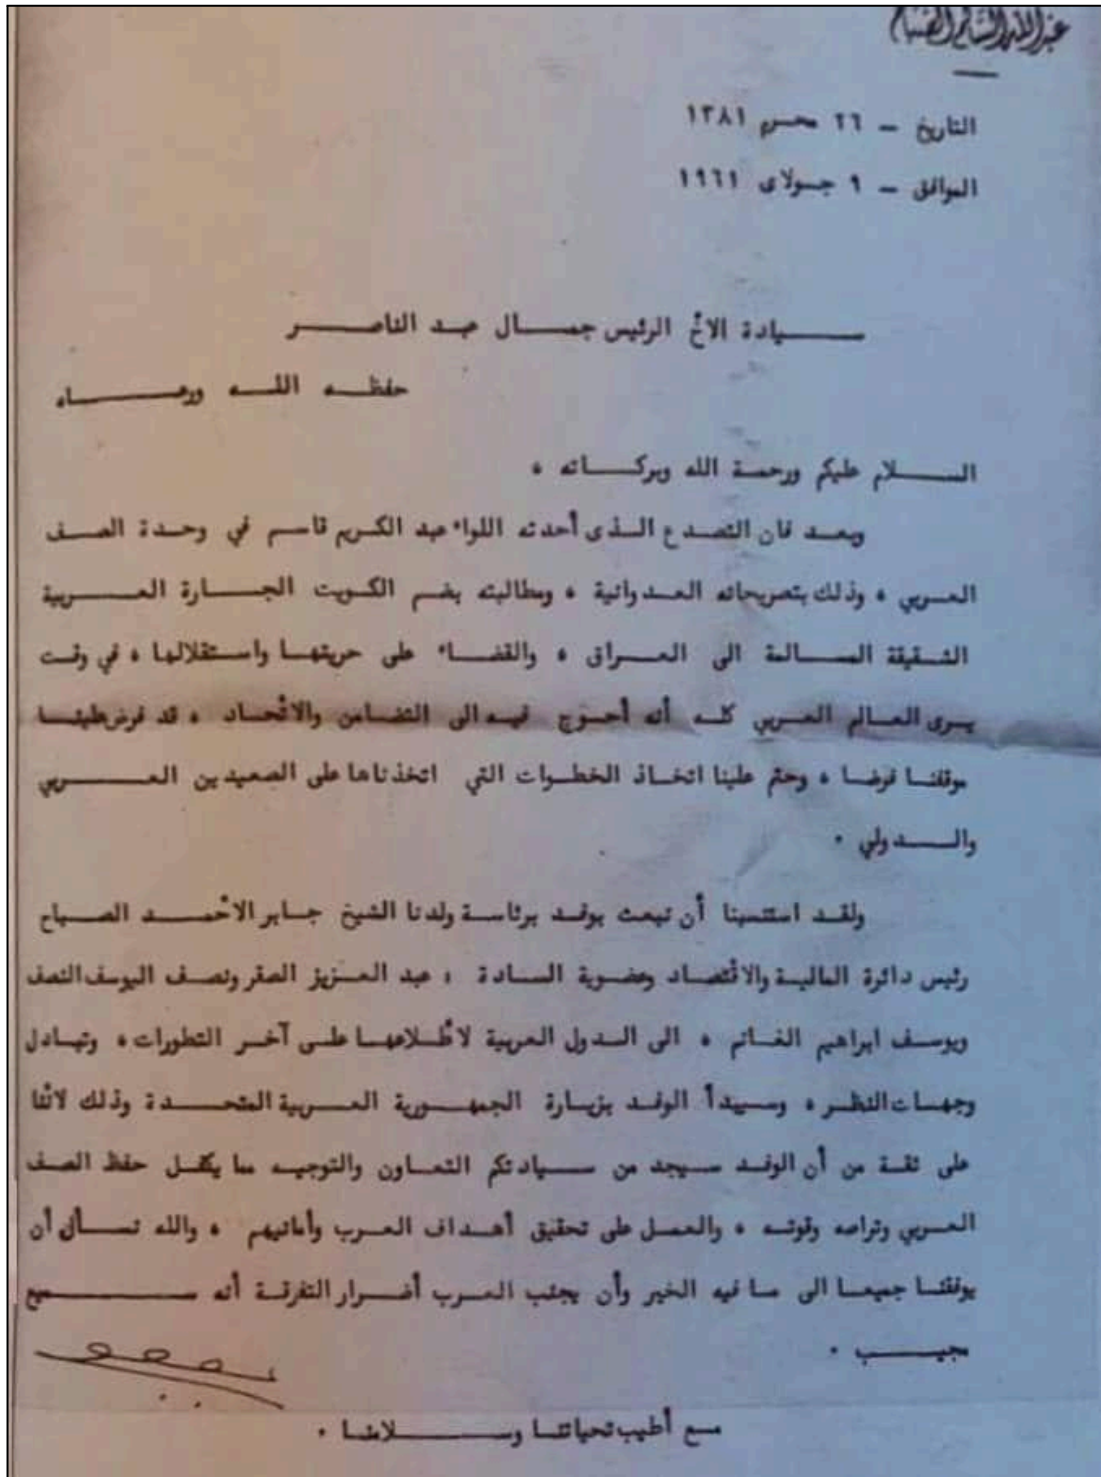 عبدالله السالم الصباح
التاريخ – ٢٦ محرم ١٣٨١
الموافق – ٩ جولاى ١٩٦١
ســيادة الاخ الرئيس جمــال عبد الناصــر
حفظــه اللــه ورعــاه
الســلام عليكم ورحمة الله وبركــاته ،
وبعــد فان التصدع الــذى أحدثه اللواء عبد الكريم قاسم في وحدة الصف
العــربي ، وذلك بتصريحاته العــدوانية ، ومطالبته بضم الكــويت الجــارة العــربية
الشــقيقة المســالمة الى العــراق ، والقضــاء على حريتهــا واستقلالهــا ، في وقت
يــرى العــالم العــربي كلــه أنه أحــوج فيــه الى التضامن والاتحــاد ، قد فرض علينــا
موقفنــا فرضــا ، وحتم علينا اتخــاذ الخطــوات التي اتخذناها على الصعيدين العــربي
والــدولي ٠
ولقــد استنسبنا أن نبعث بوفــد برئاسة ولدنا الشيخ جــابر الاحمــد الصبــاح
رئيس دائرة الماليــة والاقتصاد وعضوية الســادة : عبد العــزيز الصقر ونصف اليوسف النصف
ويوســف ابراهيم الغــانم ، الى الــدول العربية لاطــلاعهــا علــى آخــر التطورات ، وتبــادل
وجهــات النظــر ، وســيبدأ الوفــد بزيــارة الجمهــورية العــربية المتحــدة وذلك لاننا
على ثقة من أن الوفد ســيجد من ســيادتكم التعــاون والتوجيــه ما يكفــل حفظ الصف
العــربي وتراصه وقوتــه ، والعمــل على تحقيق أهــداف العــرب وأمانيهم ، والله نســأل أن
يوفقنــا جميعــا الى مــا فيه الخير وأن يجنب العــرب أضــرار التفرقــة أنه ســميع
مجيــب ٠
مــع أطيب تحياتنــا وســلامنــا ٠